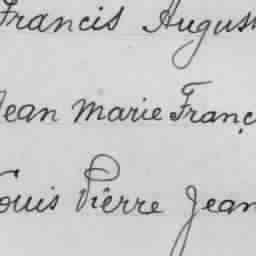 Francis August
Jean Marie Franç
Louis Pierre Jean